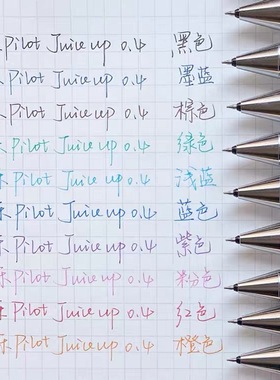 Pilot Juice up 0.4 黑色
Pilot Juice up 0.4 墨蓝
Pilot Juice up 0.4 棕色
Pilot Juice up 0.4 绿色
Pilot Juice up 0.4 浅蓝
Pilot Juice up 0.4 蓝色
Pilot Juice up 0.4 紫色
Pilot Juice up 0.4 粉色
Pilot Juice up 0.4 红色
Pilot Juice up 0.4 橙色